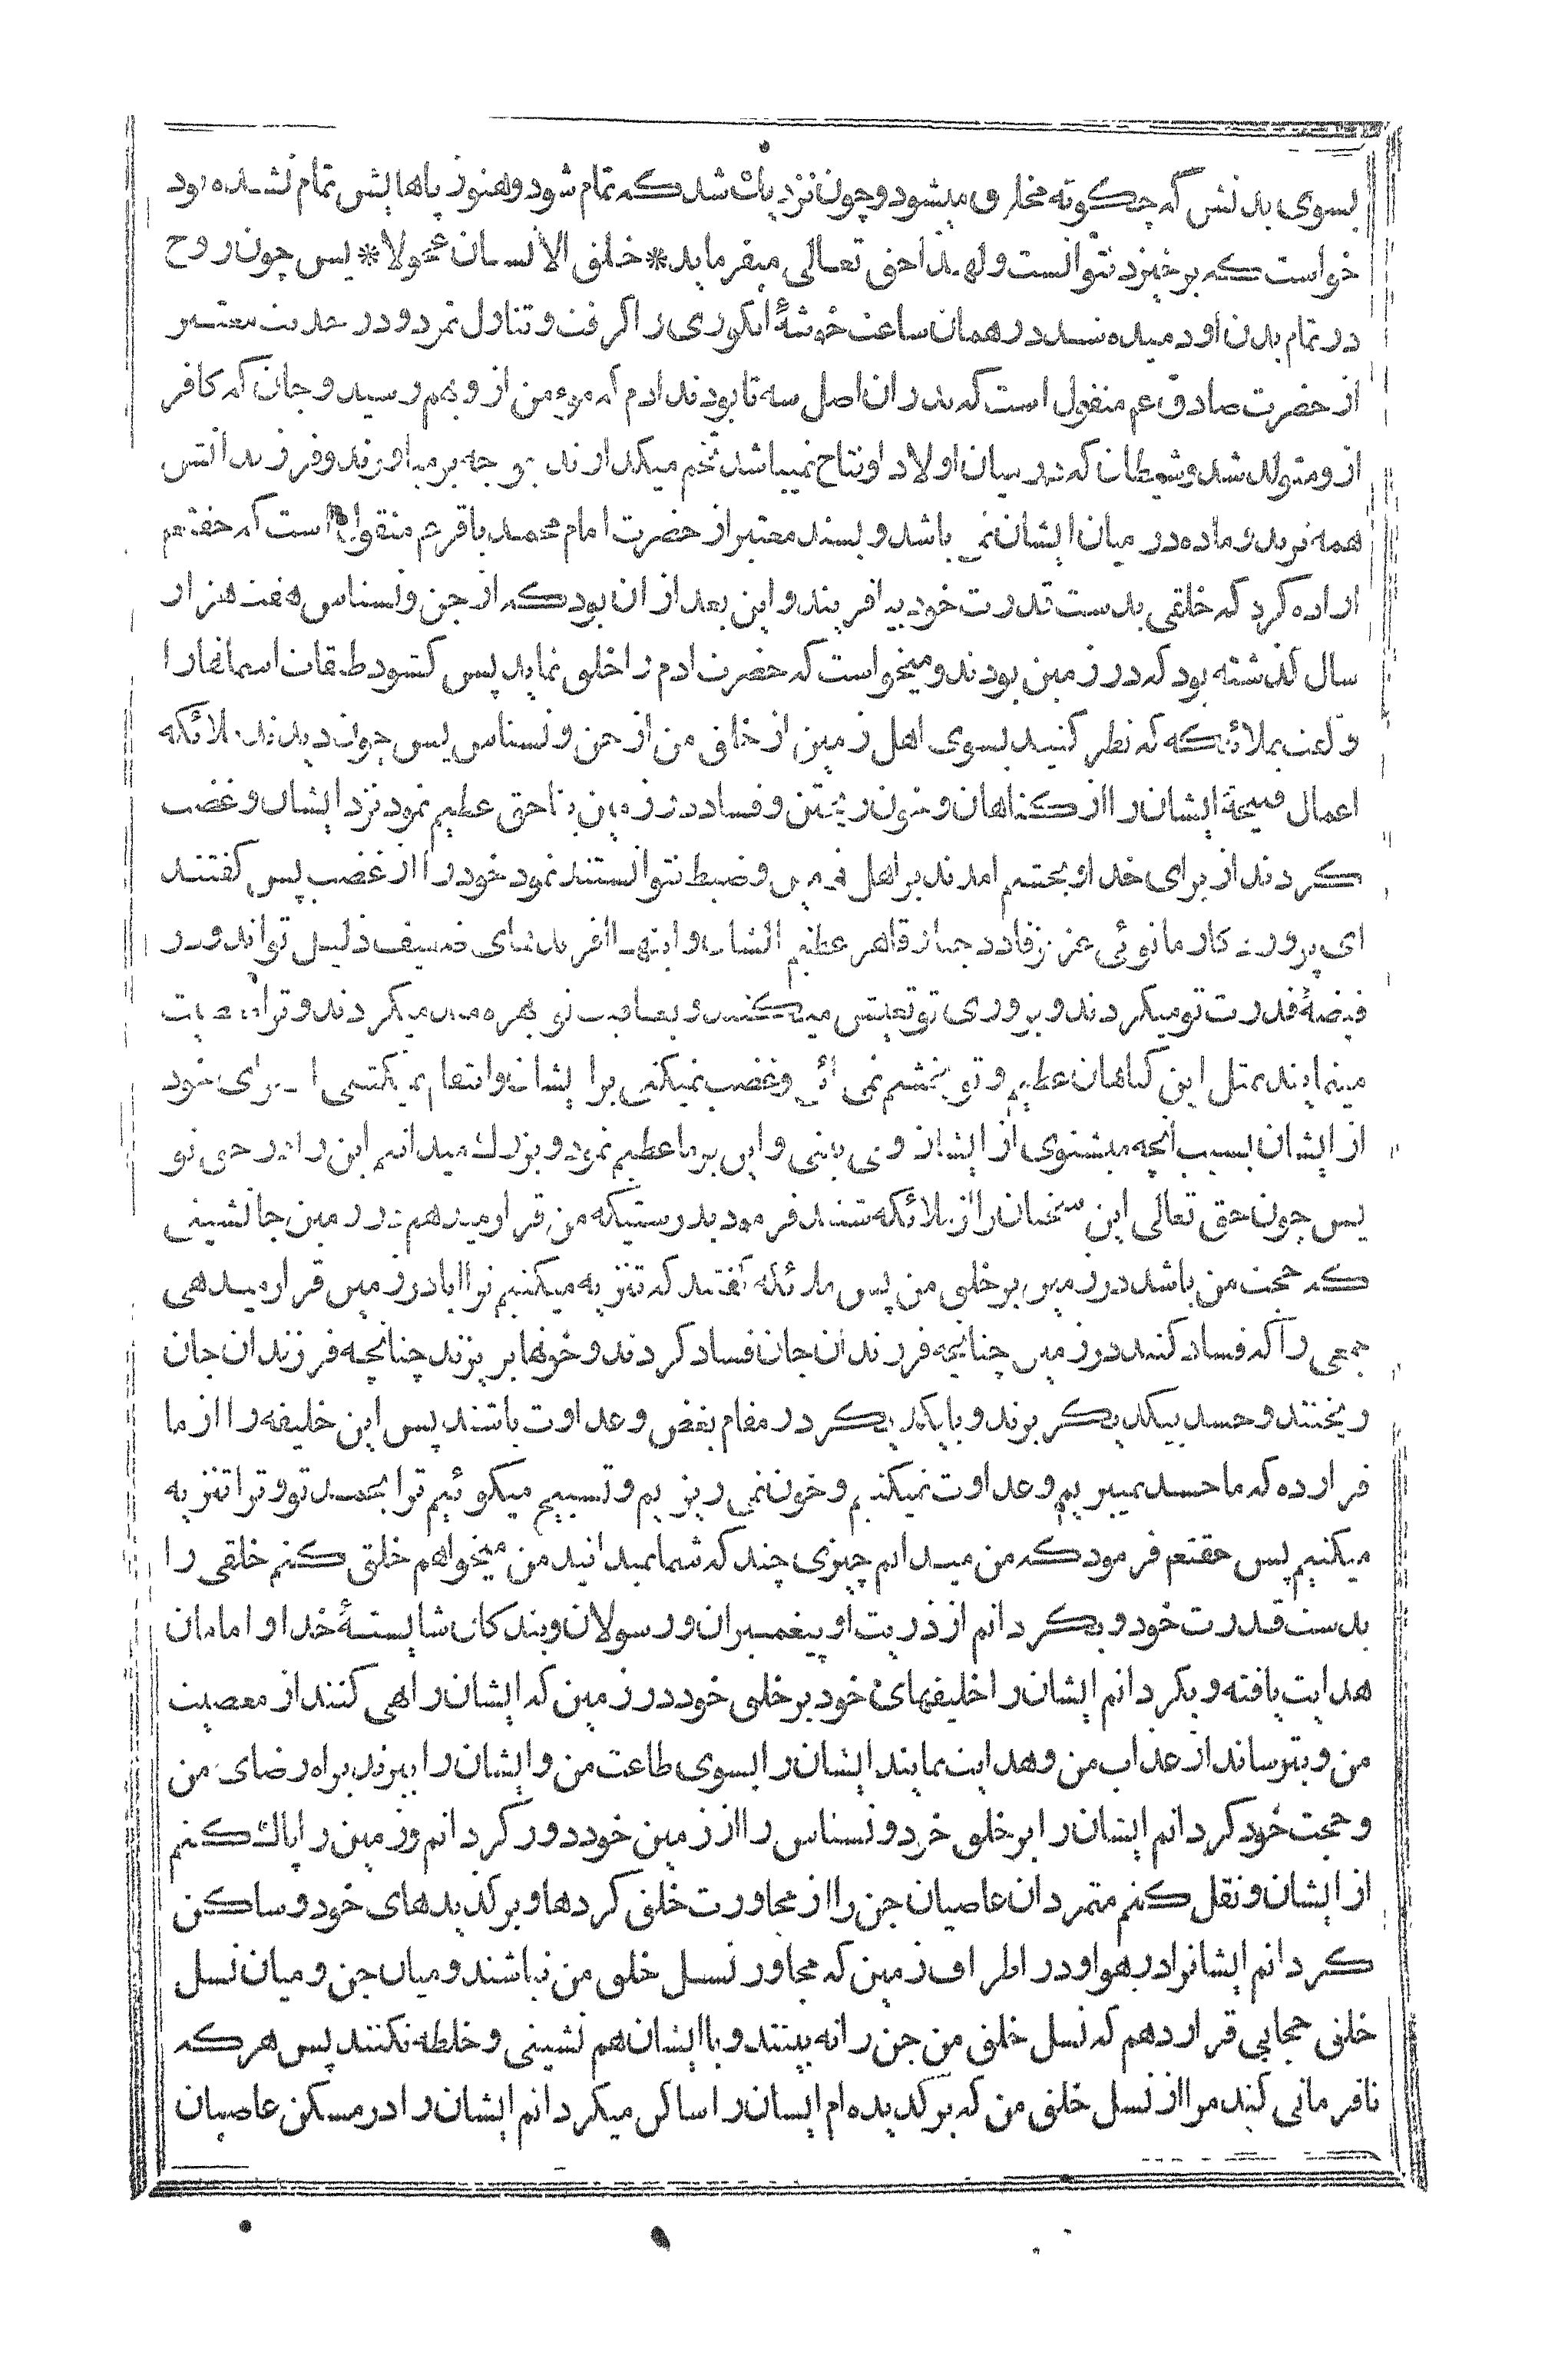 بسوی بدنش که چکونه مخلوق میشود و چون نزدیك شد که تمام شود و هنوز پاهایش تمام نشده بود
خواست که برخیزد نتوانست و لهذا حق تعالی میفرماید * خلق الانسان عجولا * پس چون روح
در تمام بدن او دمیده شد در همان ساعت خوشۀ انکوری را کرفت و تناول نمود و در حدیث معتبر
از حضرت صادق عم منقول است که پدران اصل سه تا بودند ادم که موءمن از و بهم رسید و جان که کافر
از و متولد شد و شیطان که در میان اولاد او نتاج نمیباشد تخم میکذارند و جوجه بر میاورند و فرزندانش
همه نرند و ماده در میان ایشان نمی باشد و بسند معتبر از حضرت امام محمد باقر عم منقول است که حقتعم
اراده کرد که خلقی بدست قدرت خود بیافریند و این بعد از ان بود که از جن و نسناس هفت هزار
سال کذشته بود که در زمین بودند و میخواست که حضرت ادم را خلق نماید پس کشود طبقات اسمانها را
و کفت بملائکه که نظر کنید بسوی اهل زمین از خلق من از جن و نسناس پس چون دیدند ملائکه
اعمال قبیحۀ ایشان را از کناهان و خون ریختن و فساد در زمین بناحق عظیم نمود نزد ایشان و غضب
کردند از برای خدا و بخشم امدند بر اهل زمین و ضبط نتوانستند نمود خود را از غضب پس کفتند
ای پروردکار ما توئی عزیز قادر جبار قاهر عظیم الشان و اینها افریدهای ضعیف ذلیل تواند و در
قبضۀ قدرت تو میکردند و بروزی تو تعیش میکنند و بعافیت تو بهره مند میکردند و ترا معصیت
مینمایند بمثل این کناهان عظیم و تو بخشم نمی ائی و غضب نمیکنی بر ایشان و انتقام نمیکشی از برای خود
از ایشان بسبب آنچه میشنوی از ایشان و می بینی و این بر ما عظیم نمود و بزرك میدانیم این را در حق تو
پس چون حق تعالی این سخنان را از ملائکه شنید فرمود بدرستیکه من قرار میدهم در زمین جانشینی
که حجت من باشد در زمین بر خلق من پس ملائکه کفتند که تنزیه میکنیم ترا ایا در زمین قرار میدهی
جمعی را که فساد کنند در زمین چنانچه فرزندان جان فساد کردند و خونها بریزند چنانچه فرزندان جان
ریختند و حسد بیکدیکر برند و بایکدیکر در مقام بغض و عداوت باشند پس این خلیفه را از ما
قرار ده که ما حسد نمیبریم و عداوت نمیکنیم و خون نمی ریزیم و تسبیح میکوئیم ترا بحمد تو و ترا تنزیه
میکنیم پس حقتعم فرمود که من میدانم چیزی چند که شما نمیدانید من میخواهم خلق کنم خلقی را
بدست قدرت خود و بکردانم از ذریت او پیغمبران و رسولان و بندکان شایستۀ خدا و امامان
هدایت یافته و بکردانم ایشان را خلیفهای خود بر خلق خود در زمین که ایشان را نهی کنند از معصیت
من و بترساند از عذاب من و هدایت نمایند ایشان را بسوی طاعت من و ایشان را ببرند براه رضای من
و حجت خود کردانم ایشان را بر خلق خود و نسناس را از زمین خود دور کردانم و زمین را پاك کنم
از ایشان و نقل کنم متمردان عاصیان جن را از مجاورت خلق کردها و برکذیدهای خود و ساکن
کردانم ایشانرا در هوا و در اطراف زمین که مجاور نسل خلق من نباشند و میان جن و میان نسل
خلق حجابی قرار دهم که نسل خلق من جن را نه بینند و با ایشان هم نشینی و خلطه نکنند پس هر که
نافرمانی کند مرا از نسل خلق من که برکذیده ام ایشان را ساکن میکردانم ایشان را در مسکن عاصیان